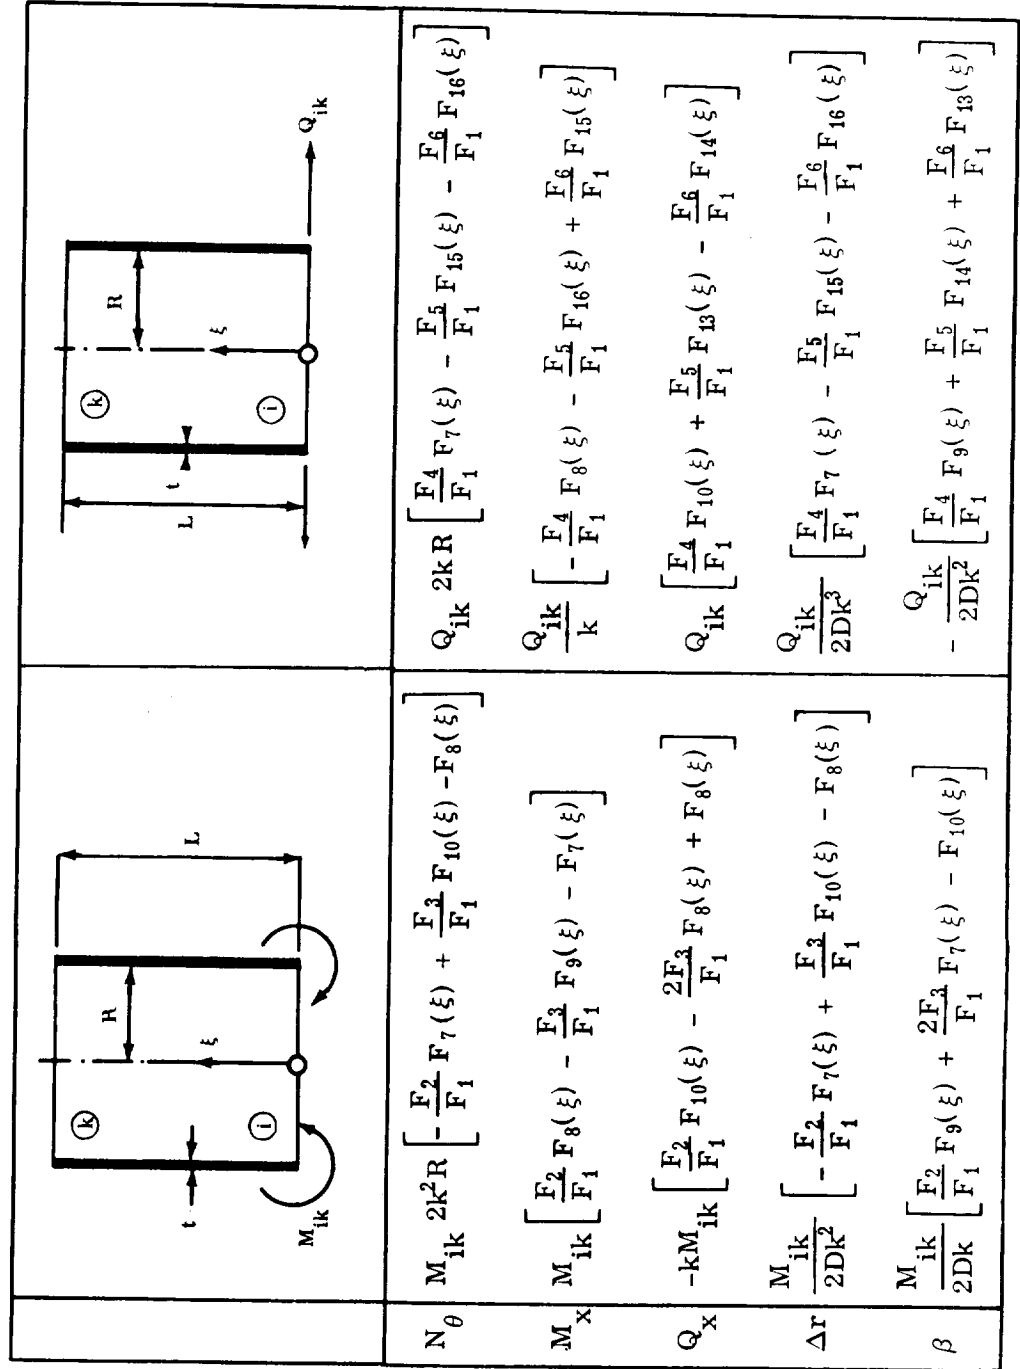 t
R
L
ξ
k
i
M_ik
L
t
R
ξ
k
i
Q_ik
N_θ
M_ik 2k²R [ - F_2/F_1 F_7(ξ) + F_3/F_1 F_10(ξ) - F_8(ξ) ]
Q_ik 2kR [ F_4/F_1 F_7(ξ) - F_5/F_1 F_15(ξ) - F_6/F_1 F_16(ξ) ]
M_x
M_ik [ F_2/F_1 F_8(ξ) - F_3/F_1 F_9(ξ) - F_7(ξ) ]
Q_ik/k [ - F_4/F_1 F_8(ξ) - F_5/F_1 F_16(ξ) + F_6/F_1 F_15(ξ) ]
Q_x
-kM_ik [ F_2/F_1 F_10(ξ) - 2F_3/F_1 F_8(ξ) + F_8(ξ) ]
Q_ik [ F_4/F_1 F_10(ξ) + F_5/F_1 F_13(ξ) - F_6/F_1 F_14(ξ) ]
Δr
M_ik/2Dk² [ - F_2/F_1 F_7(ξ) + F_3/F_1 F_10(ξ) - F_8(ξ) ]
Q_ik/2Dk³ [ F_4/F_1 F_7(ξ) - F_5/F_1 F_15(ξ) - F_6/F_1 F_16(ξ) ]
β
M_ik/2Dk [ F_2/F_1 F_9(ξ) + 2F_3/F_1 F_7(ξ) - F_10(ξ) ]
- Q_ik/2Dk² [ F_4/F_1 F_9(ξ) + F_5/F_1 F_14(ξ) + F_6/F_1 F_13(ξ) ]